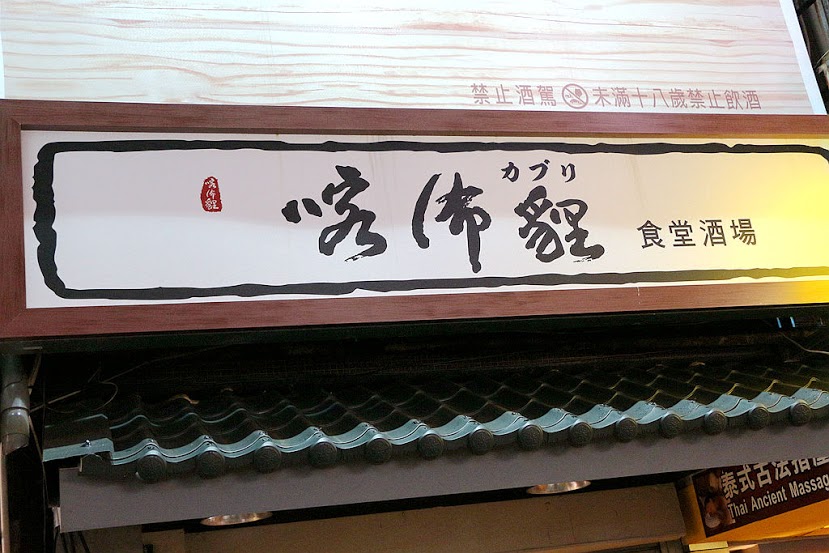 禁止酒駕 未滿十八歲禁止飲酒
喀佈貍
カブリ
喀佈貍 食堂酒場
泰式古法指
Thai Ancient Massag